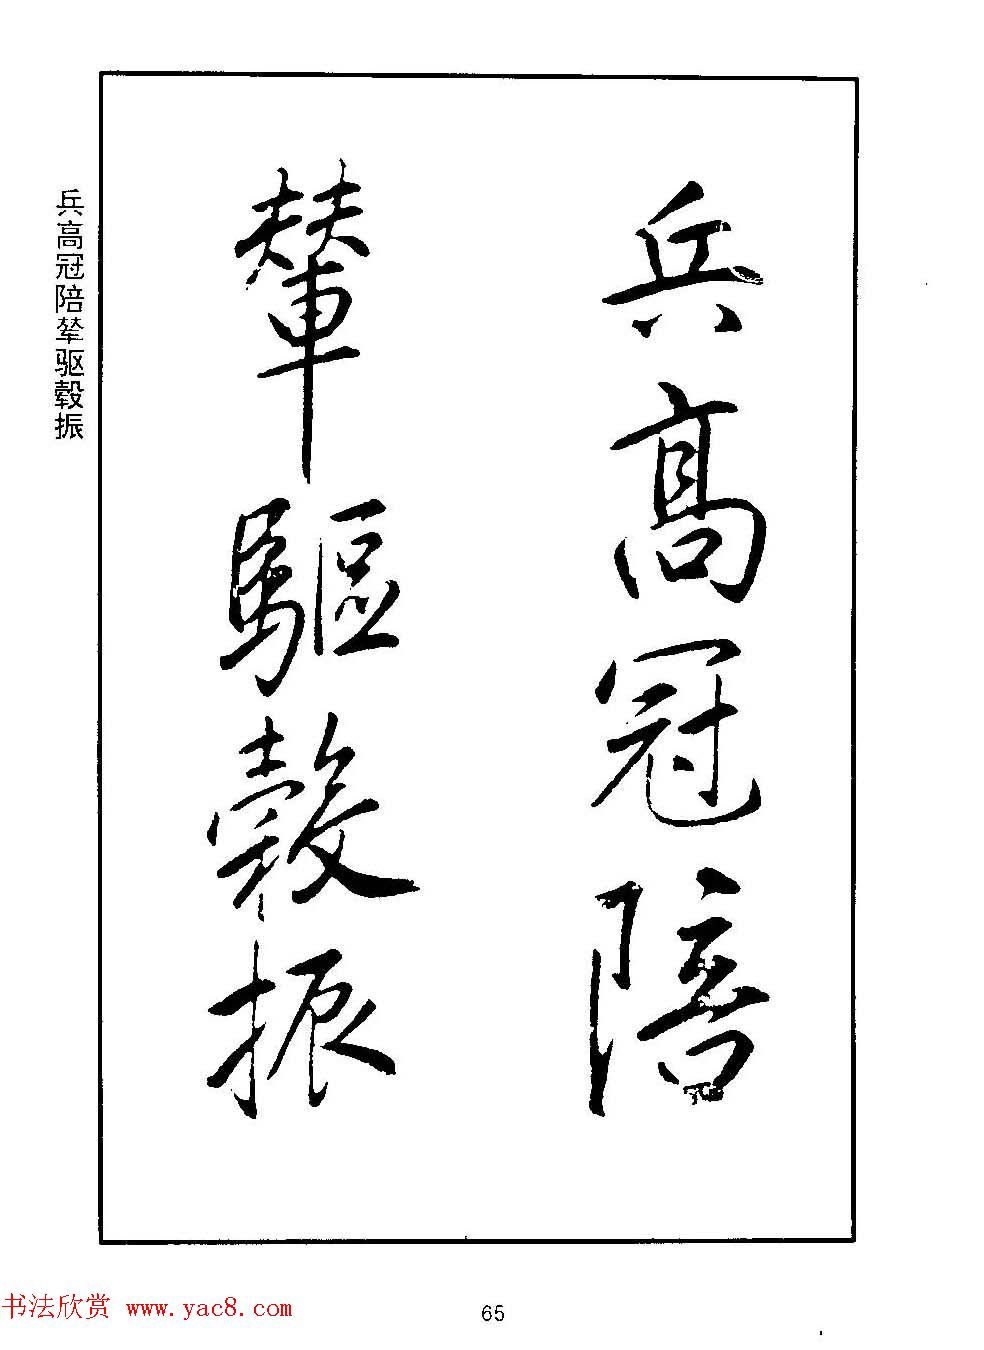 兵高冠陪
輦驅轂振
兵高冠陪辇驱毂振
书法欣赏 www.yac8.com
65